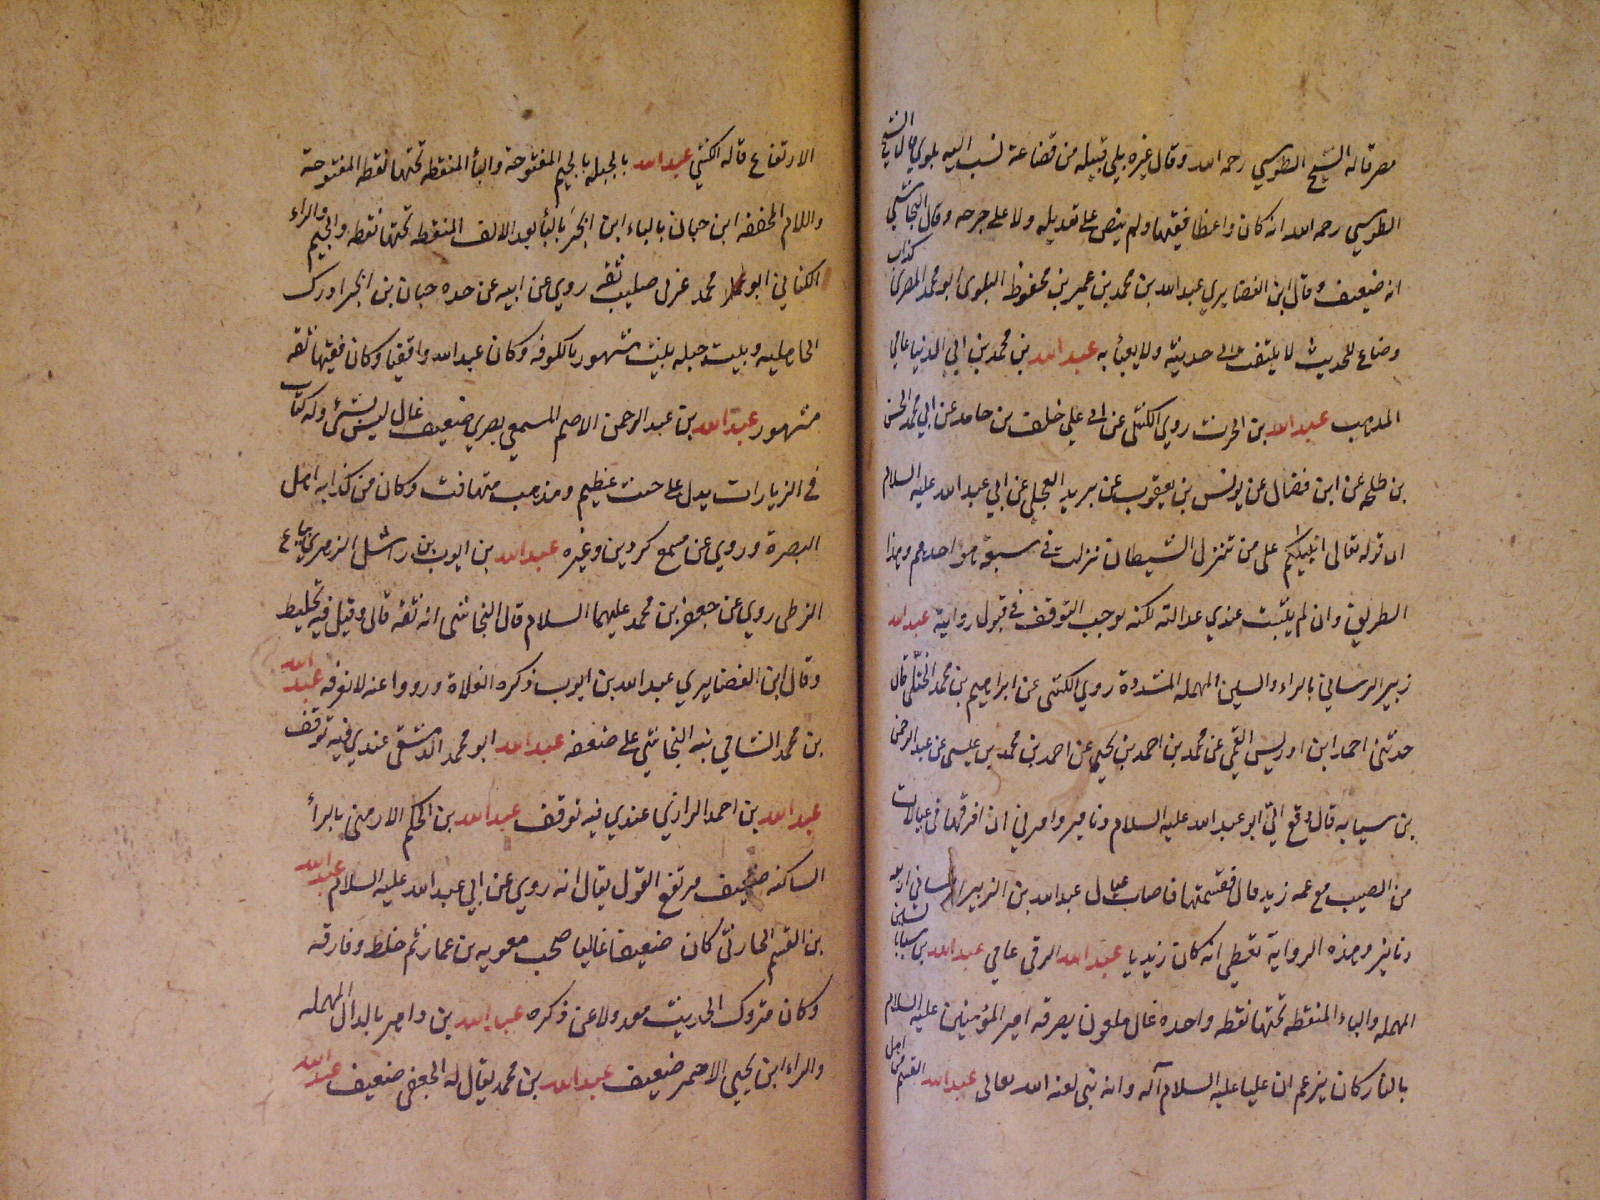 مصر قاله الشيخ الطوسي رحمه الله وقال غيره بلي قبيله من قضاعة نسب اليه بلوي قال الشيخ
الطوسي رحمه الله انه كان واعظا فقيها ولم ينص على تعديله ولا على جرحه وقال النجاشي
انه ضعيف وقال ابن الغضايري عبدالله بن محمد بن عمير بن محفوظ البلوى ابو محمد المصرى كذاب
وضاع للحديث لا يلتفت الى حديثه ولا يعبأ به عبدالله بن محمد بن ابي الدنيا عامي
المذهب عبدالله بن الحرث روي الكشى عن ابى علي خلف بن حامد عن ابي محمد الحسن
بن طلحه عن ابن فضال عن يونس بن يعقوب عن بريد العجلى عن ابي عبدالله عليه السلام
ان قوله تعالى انبئكم على من تنزل الشيطان نزلت في سبعة هو احدهم وهذا
الطريق وان لم يثبت عندي عدالته لكنه يوجب التوقف في قبول رواية عبدالله
زبير الرساني بالراء والسين المهمله المشددة روي الكشى عن ابراهيم بن محمد الختلى قال
حدثنى احمد ابن ادريس القمى عن محمد بن احمد بن يحيى عن احمد بن محمد بن عيسى عن عبد الرحمن
بن سيابه قال دفع الي ابو عبدالله عليه السلام دنانير وامرني ان افرقها فى عيالات
من اصيب مع عمه زيد قال فقسمتها فاصاب عيال عبدالله بن الزبير الرسانى اربعه
دنانير وهذه الرواية تعطى انه كان زيديا عبدالله الرقى عامي عبدالله بن سبا بالسين
المهمله والباء المنقطه تحتها نقطه واحده غال ملعون حرقه امير المؤمنين عليه السلام
بالنار كان يزعم ان عليا عليه السلام آله وانه نبى لعنه الله تعالى عبدالله القسم من اهل
الارتفاع قاله الكشي عبدالله بالجبله بالجيم المفتوحة والبأ المنقطه تحتها نقطه المفتوحة
واللام المخففه ابن حبان بالباء ابن ابجر بالبأ بعد الالف المنقطه تحتها نقطه والجيم والراء
الكناني ابو محمد عربى صليب ثقه روي عن ابيه عن جده حبان بن ابجر ادرك
الجاهليه وبيت جبله بيت مشهور بالكوفه وكان عبدالله واقفيا وكان فقيها ثقه
مشهور عبدالله بن عبد الرحمن الاصم المسمعي بصري ضعيف غال ليس بشئ وله كتاب
في الزيارات يدل على خبث عظيم ومذهب متهافت وكان من كذابه اهل
البصرة وروي عن مسمع كردين وغيره عبدالله بن ايوب بن راشد الزهري بياع
الزطى روي عن جعفر بن محمد عليهما السلام قال النجاشى انه ثقه قال وقيل فيه تخليط
وقال ابن الغضايري عبدالله بن ايوب ذكره الغلاة ورووا عنه لا نعرفه عبدالله
بن محمد الشامي نبه النجاشي على ضعفه عبدالله ابو محمد الدمشقى عندي فيه توقف
عبدالله بن احمد الرازي عندي فيه توقف عبدالله بن الحكم الارمنى بالرأ
الساكنه ضعيف مرتفع القول يقال انه روي عن ابي عبدالله عليه السلام عبدالله
بن القسم الحارثى كان ضعيفا غاليا صحب معويه بن عمار ثم خلط وفارقه
وكان متروك الحديث معدولا عن ذكره عبدالله بن داهر بالدال المهمله
والراء ابن يحيى الاحمر ضعيف عبدالله بن محمد يقال له الجعفى ضعيف عبدالله